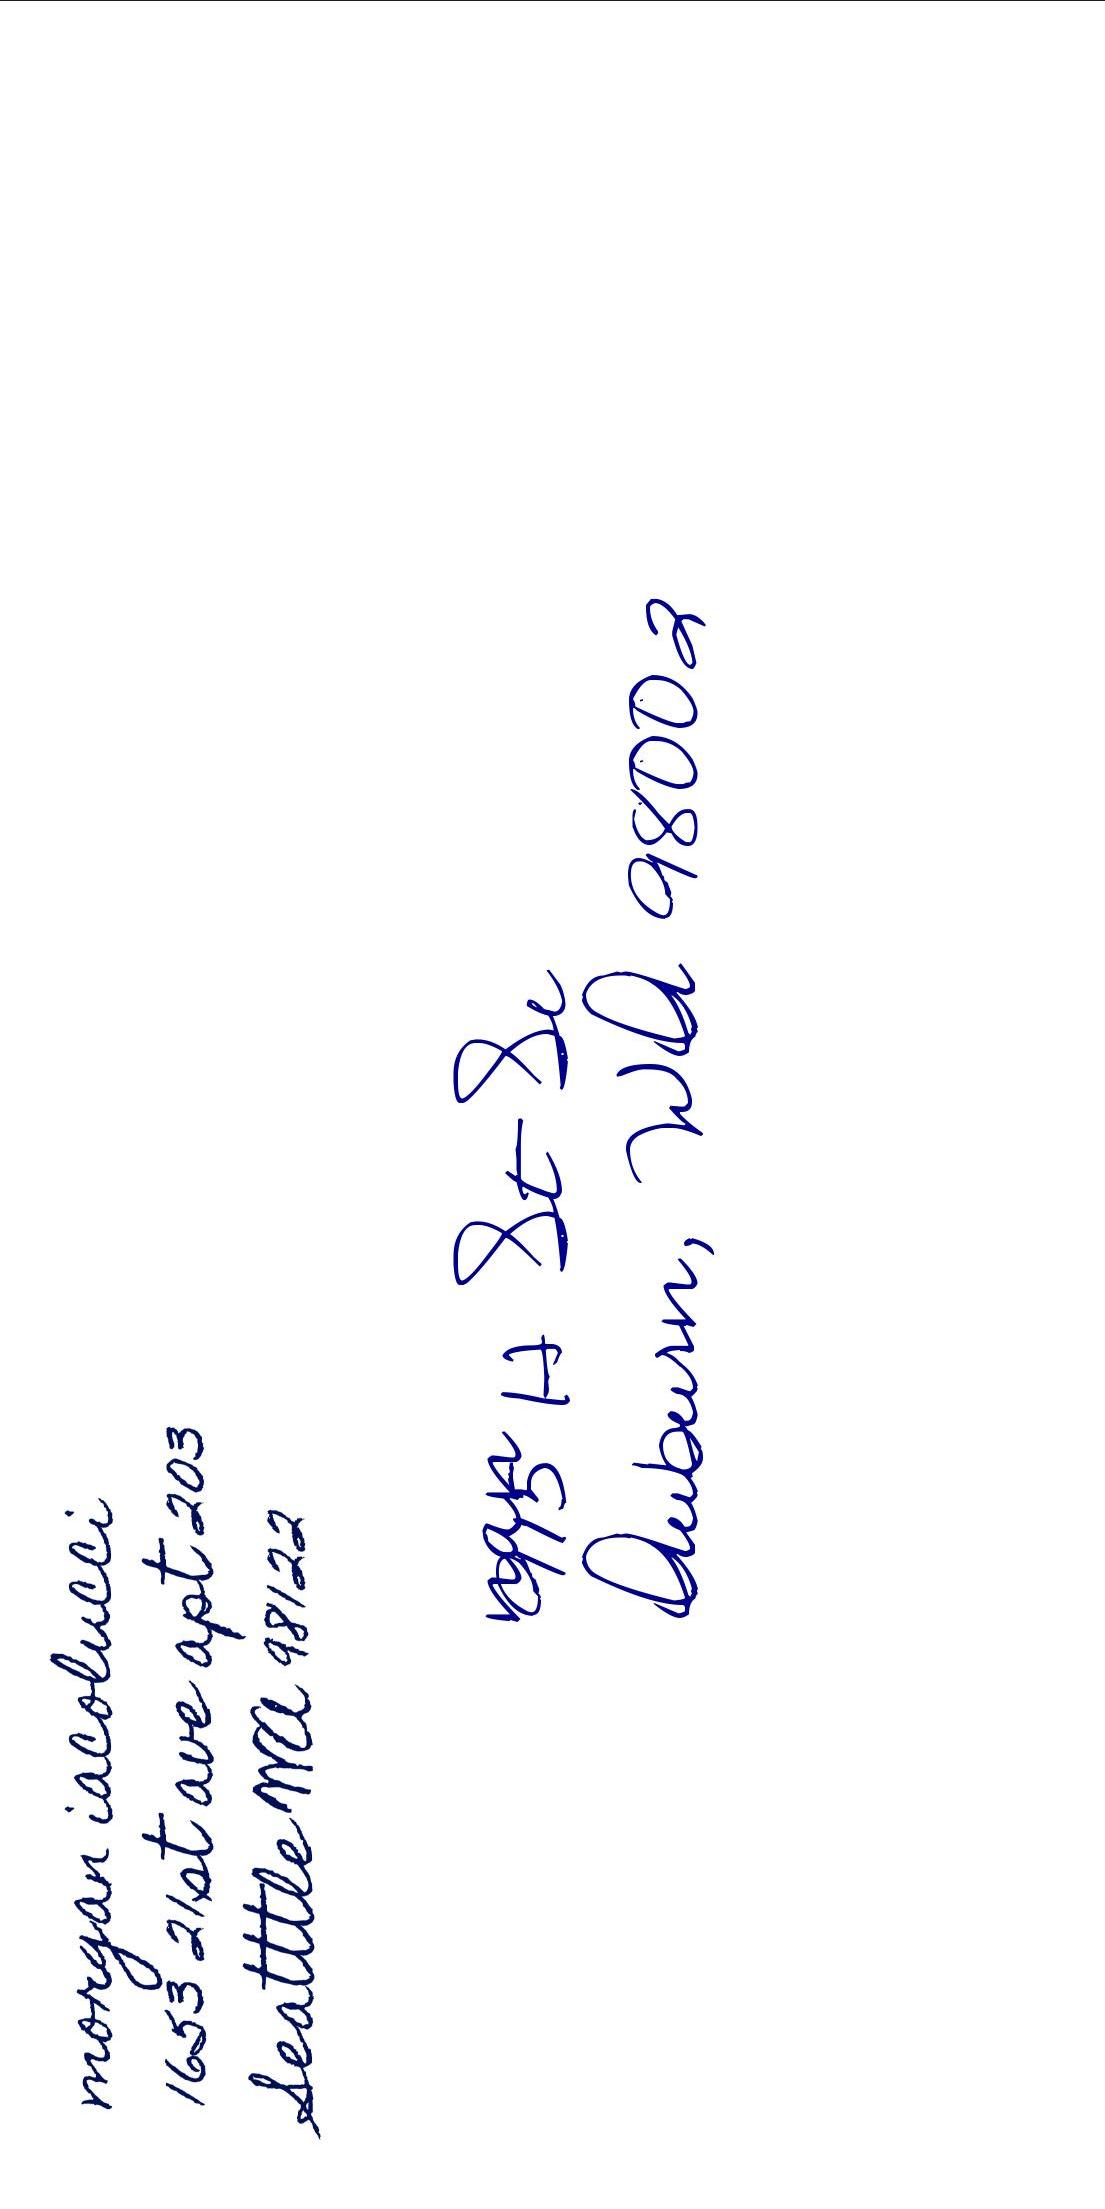 morgan iacolucci
1653 21st ave apt 203
Seattle WA 98122
H St Se
Auburn, Wa 98002